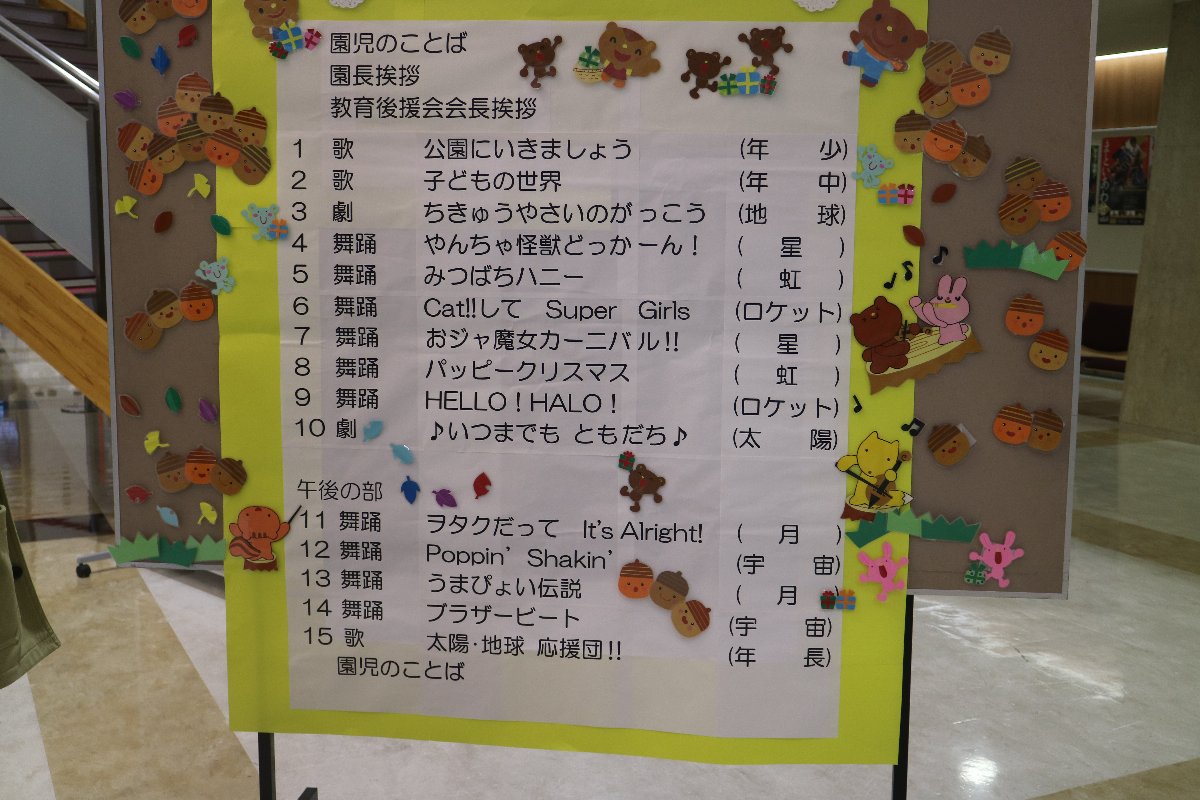 園児のことば
園長挨拶
教育後援会会長挨拶
1 歌 公園にいきましょう (年 少)
2 歌 子どもの世界 (年 中)
3 劇 ちきゅうやさいのがっこう (地 球)
4 舞踊 やんちゃ怪獣どっかーん! ( 星 )
5 舞踊 みつばちハニー ( 虹 )
6 舞踊 Cat!!して Super Girls (ロケット)
7 舞踊 おジャ魔女カーニバル!! ( 星 )
8 舞踊 パッピークリスマス ( 虹 )
9 舞踊 HELLO!HALO! (ロケット)
10 劇 ♪いつまでも ともだち♪ (太 陽)
午後の部
11 舞踊 ヲタクだって It's Alright! ( 月 )
12 舞踊 Poppin' Shakin' (宇 宙)
13 舞踊 うまぴょい伝説 ( 月 )
14 舞踊 ブラザービート (宇 宙)
15 歌 太陽・地球 応援団!! (年 長)
園児のことば